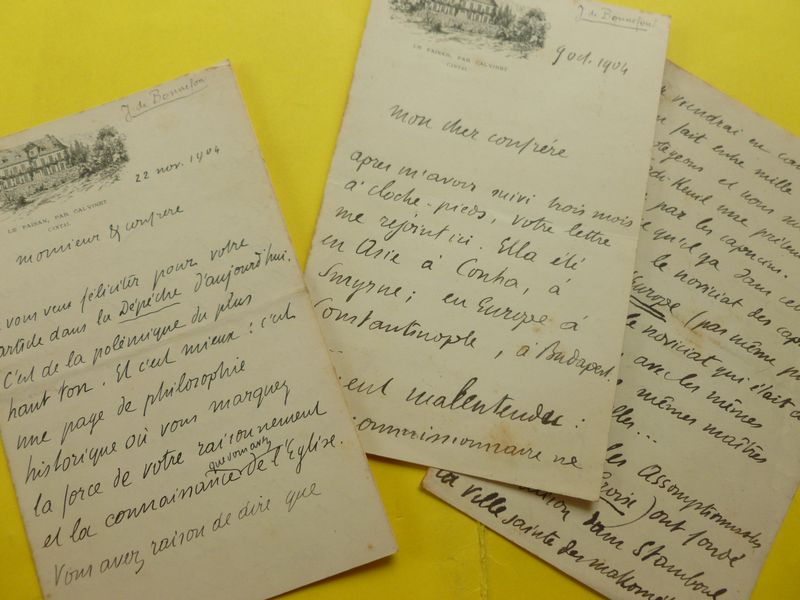 J. de Bonnefon
22 nov. 1904
LE FAISAN, PAR CALVINET
CANTAL
Monsieur & confrère
vous veux féliciter pour votre
article dans la Dépêche d'aujourd'hui.
C'est de la polémique du plus
haut ton. Et c'est mieux : c'est
une page de philosophie
historique où vous marquez
la force de votre raisonnement
et la connaissance que vous avez de l'Eglise.
Vous avez raison de dire que
J. de Bonnefon
LE FAISAN, PAR CALVINET
CANTAL
9 oct. 1904
Mon cher confrère
après m'avoir suivi trois mois
à cloche-pieds, votre lettre
me rejoint ici. Ella été
en Asie à Conha, à
Smyrne ; en Europe à
Constantinople, à Budapest.
malentendu :
commissionnaire ne
voudrai en
fait entre mille
et nous
une
par les capucins.
qu'il y a dans
le noviciat des
Europe (pas même
le noviciat qui était
avec les mêmes
mêmes maîtres
elles...
les Assomptionnistes
Croix) ont fondé
dans Stamboul
la ville sainte des